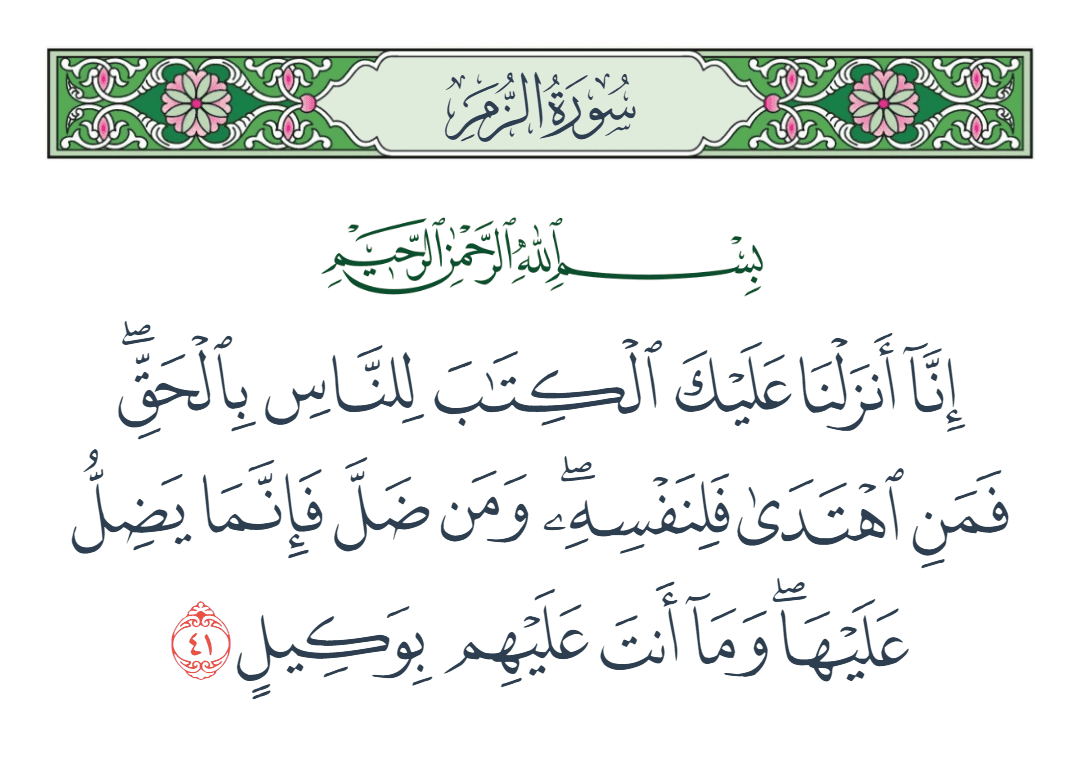 سُورَةُ الزُّمَرِ
بِسْمِ ٱللَّهِ ٱلرَّحْمَٰنِ ٱلرَّحِيمِ
إِنَّآ أَنزَلْنَا عَلَيْكَ ٱلْكِتَٰبَ لِلنَّاسِ بِٱلْحَقِّۖ
فَمَنِ ٱهْتَدَىٰ فَلِنَفْسِهِۦۖ وَمَن ضَلَّ فَإِنَّمَا يَضِلُّ
عَلَيْهَاۖ وَمَآ أَنتَ عَلَيْهِم بِوَكِيلٍ ٤١